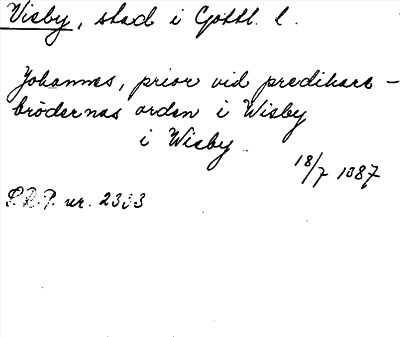 Visby, stad i Gottl. l.
Johannes, prior vid predikare-
brödernas orden i Wisby
i Wisby.
18/7 1387
S.R.P. nr. 2333